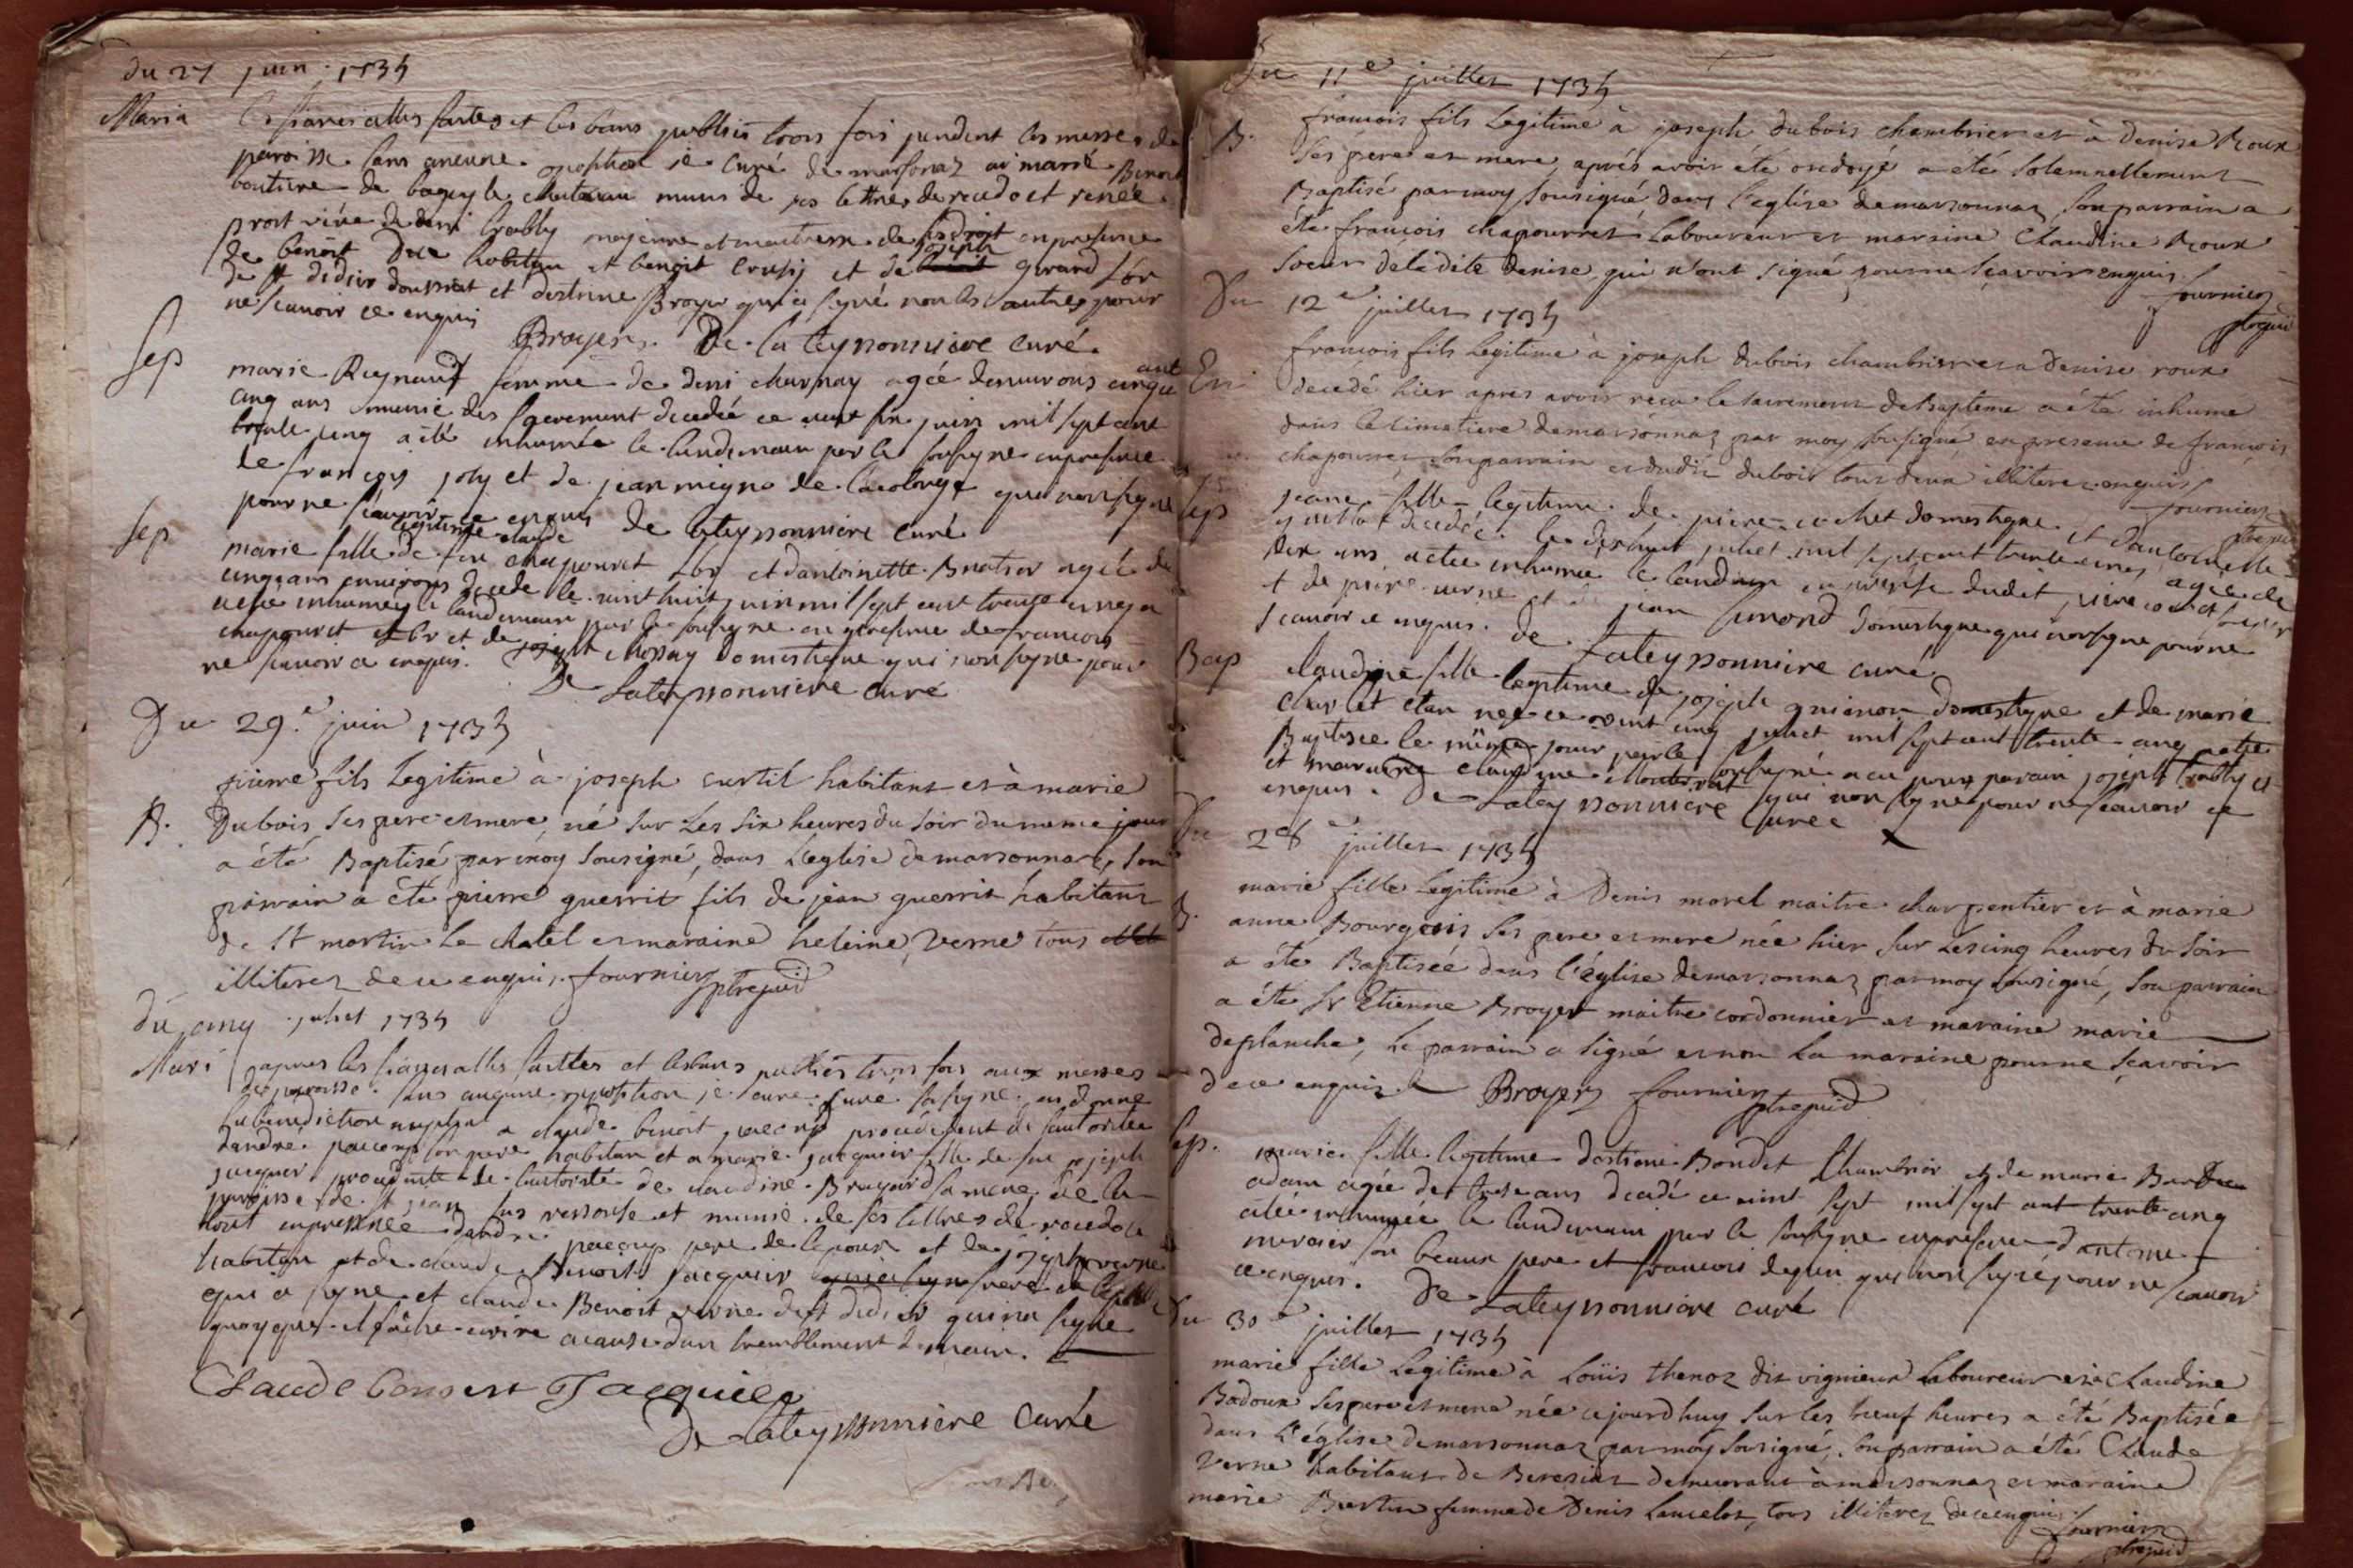 du 27 juin 1735
Maria
les fiancialles faites et les bans publiés trois fois pendent les messes de
paroisse sans aucune opposition je curé de marsonas ai marié Benoit
bouture de bagey le chateau muni de ses lettres de recedo et renée
prost vève de deni trably majeure et maitresse de ses droit en presence
de benoit Duc habitan et benoit crusy et de joseph girard lbr
de st didier doussiat et destienne Broyer qui a signé non les autres pour
ne scavoir ce enquis
Broyer. De lateyssonniere curé.
Sep
marie Reynaud femme de deni charnay agée denvirons cinquante
cinq ans munie des sacrement decedée ce vint six juin mil sept cent
trente cinq a été inhumée le landemain par le soussigne en presence
de françois joly et de jean migne de lacolonge qui non signe
pour ne scavoir ce enquis De lateyssonniere curé
Sep
marie fille legitime de feu claude chapouret lbr et dantoinette Bratier agée de
cinq ans environs decede le vint huit juin mil sept cent trente cinq a
eté inhumée le landemain par le soussigne en presence de francois
chapouret lbr et de joseph chossay domestique qui non signe pour
ne scavoir ce enquis. De Lateyssonniere curé
Du 29e juin 1735
B.
pierre fils Legitime à joseph curtil habitant et à marie
Dubois ses pere et mere, né sur Les six heures du soir du meme jour
a été Baptisé par moy sousigné, dans L'eglise de marsonnaz, son
parrain a été pierre guerrit fils de jean guerrit habitant
de St martin Le chatel et maraine heleine Verne tous
illiterez de ce enquis. fournier ptre vic
du cinq juliet 1735
Mari
apres les fiancialles faittes et les bans publiés trois fois aux messes
de paroisse sans aucune opposition je curé soussigne ai donne
la benediction nuptial a claude benoit pacoup procédent de lautorité
dandré pacoup son pere habitan et a marie jacquier fille de feu joseph
jacquier procedante de lautorité de claudine Brayard sa mere de la
paroisse de st jean sus ressouse et munie de ses lettres de recedo le
tout en presence dandré pacoup pere de lepoux et de joseph verne
habitan et de claude Benoit jacquier frere de lepouse
qui a signe et claude Benoit verne de st didier qui na signe
quoyque il sache ecrire a cause dun tremblement de main.
Claude benoist Jacquier
De Lateyssonniere Curé
Du 11e juillet 1735
B.
francois fils Legitime à joseph dubois chambrier et à Denise Roux
ses pere et mere, après avoir été ondoyé a été solemnellement
Baptisé par moy sousigné, dans l'eglise de marsonnaz, son parrain a
été françois chapourret Laboureur et marsine Claudine Roux
soeur de ladite denise, qui n'ont signé pour ne sçavoir enquis.
fournier
ptre vic
Du 12e juillet 1735
En
francois fils legitime à joseph dubois chambrier et a denise roux
decedé hier apres avoir recu le sacrement de Bapteme a été inhumé
dans le cimetiere de marsonnaz par moy sousigné, en presence de françois
chapourret son parrain et dudit dubois tous deux illiterez enquis
fournier
ptre vic
Sep
jeane fille legitime de piere cochet domestique et dantoinette
decedée le dixhuit juliet mil sept cent trente cinq agée de
dix ans a etée inhumée le landemain en presence dudit piere cochet son pere
+ de piere verne et de jean simond domestique qui non signe pour ne
scavoir ce enquis. De Lateyssonniere curé
Bap
claudine fille legitime de joseph guienon domestique et de marie
charlet etan née ce vint cinq juliet mil sept cent trente cinq a eté
Baptisée le même jour par le soussigné a eu pour parain joseph trably et
et maraine claudine qui non signe pour ne scavoir ce
enquis. De Lateyssonniere Curée
Du 28e juillet 1735
B.
marie fille Legitime à Denis morel maitre charpentier et à marie
anne Bourgeois ses pere et mere née hier sur Les cinq heures du soir
a été Baptisée dans l'église de marsonnaz par moy sousigné, son parrain
a été Sr Etienne Broyer maitre cordonnier et maraine marie
deplanche, Le parrain a signé et non La maraine pour ne sçavoir
de ce enquis. Broyer fournier ptre vic
Sep.
marie fille legitime destiene Bondet chambrier et de marie
adam agée de treze ans decedé ce vint sept mil sept cent trente cinq
a eté inhumée le landemain par le soussigne en presence dantoine
mercier son beaux pere et francois deguin qui non signé pour ne scavoir
ce enquis. De Lateyssonniere curé
Du 30e juillet 1735
marie fille Legitime à Loüis thenoz dit vignieux Laboureur et à Claudine
Badoux ses pere et mere née cejourd huy sur les neuf heures a été Baptisée
dans L'église de marsonnaz par moy sousigné, son parrain a été Claude
Verne habitant de Bereziat demeurant à marsonnaz et maraine
marie Burtin femme de Denis Lancelot, tous illiterez de ce enquis.
fournier
ptre vic